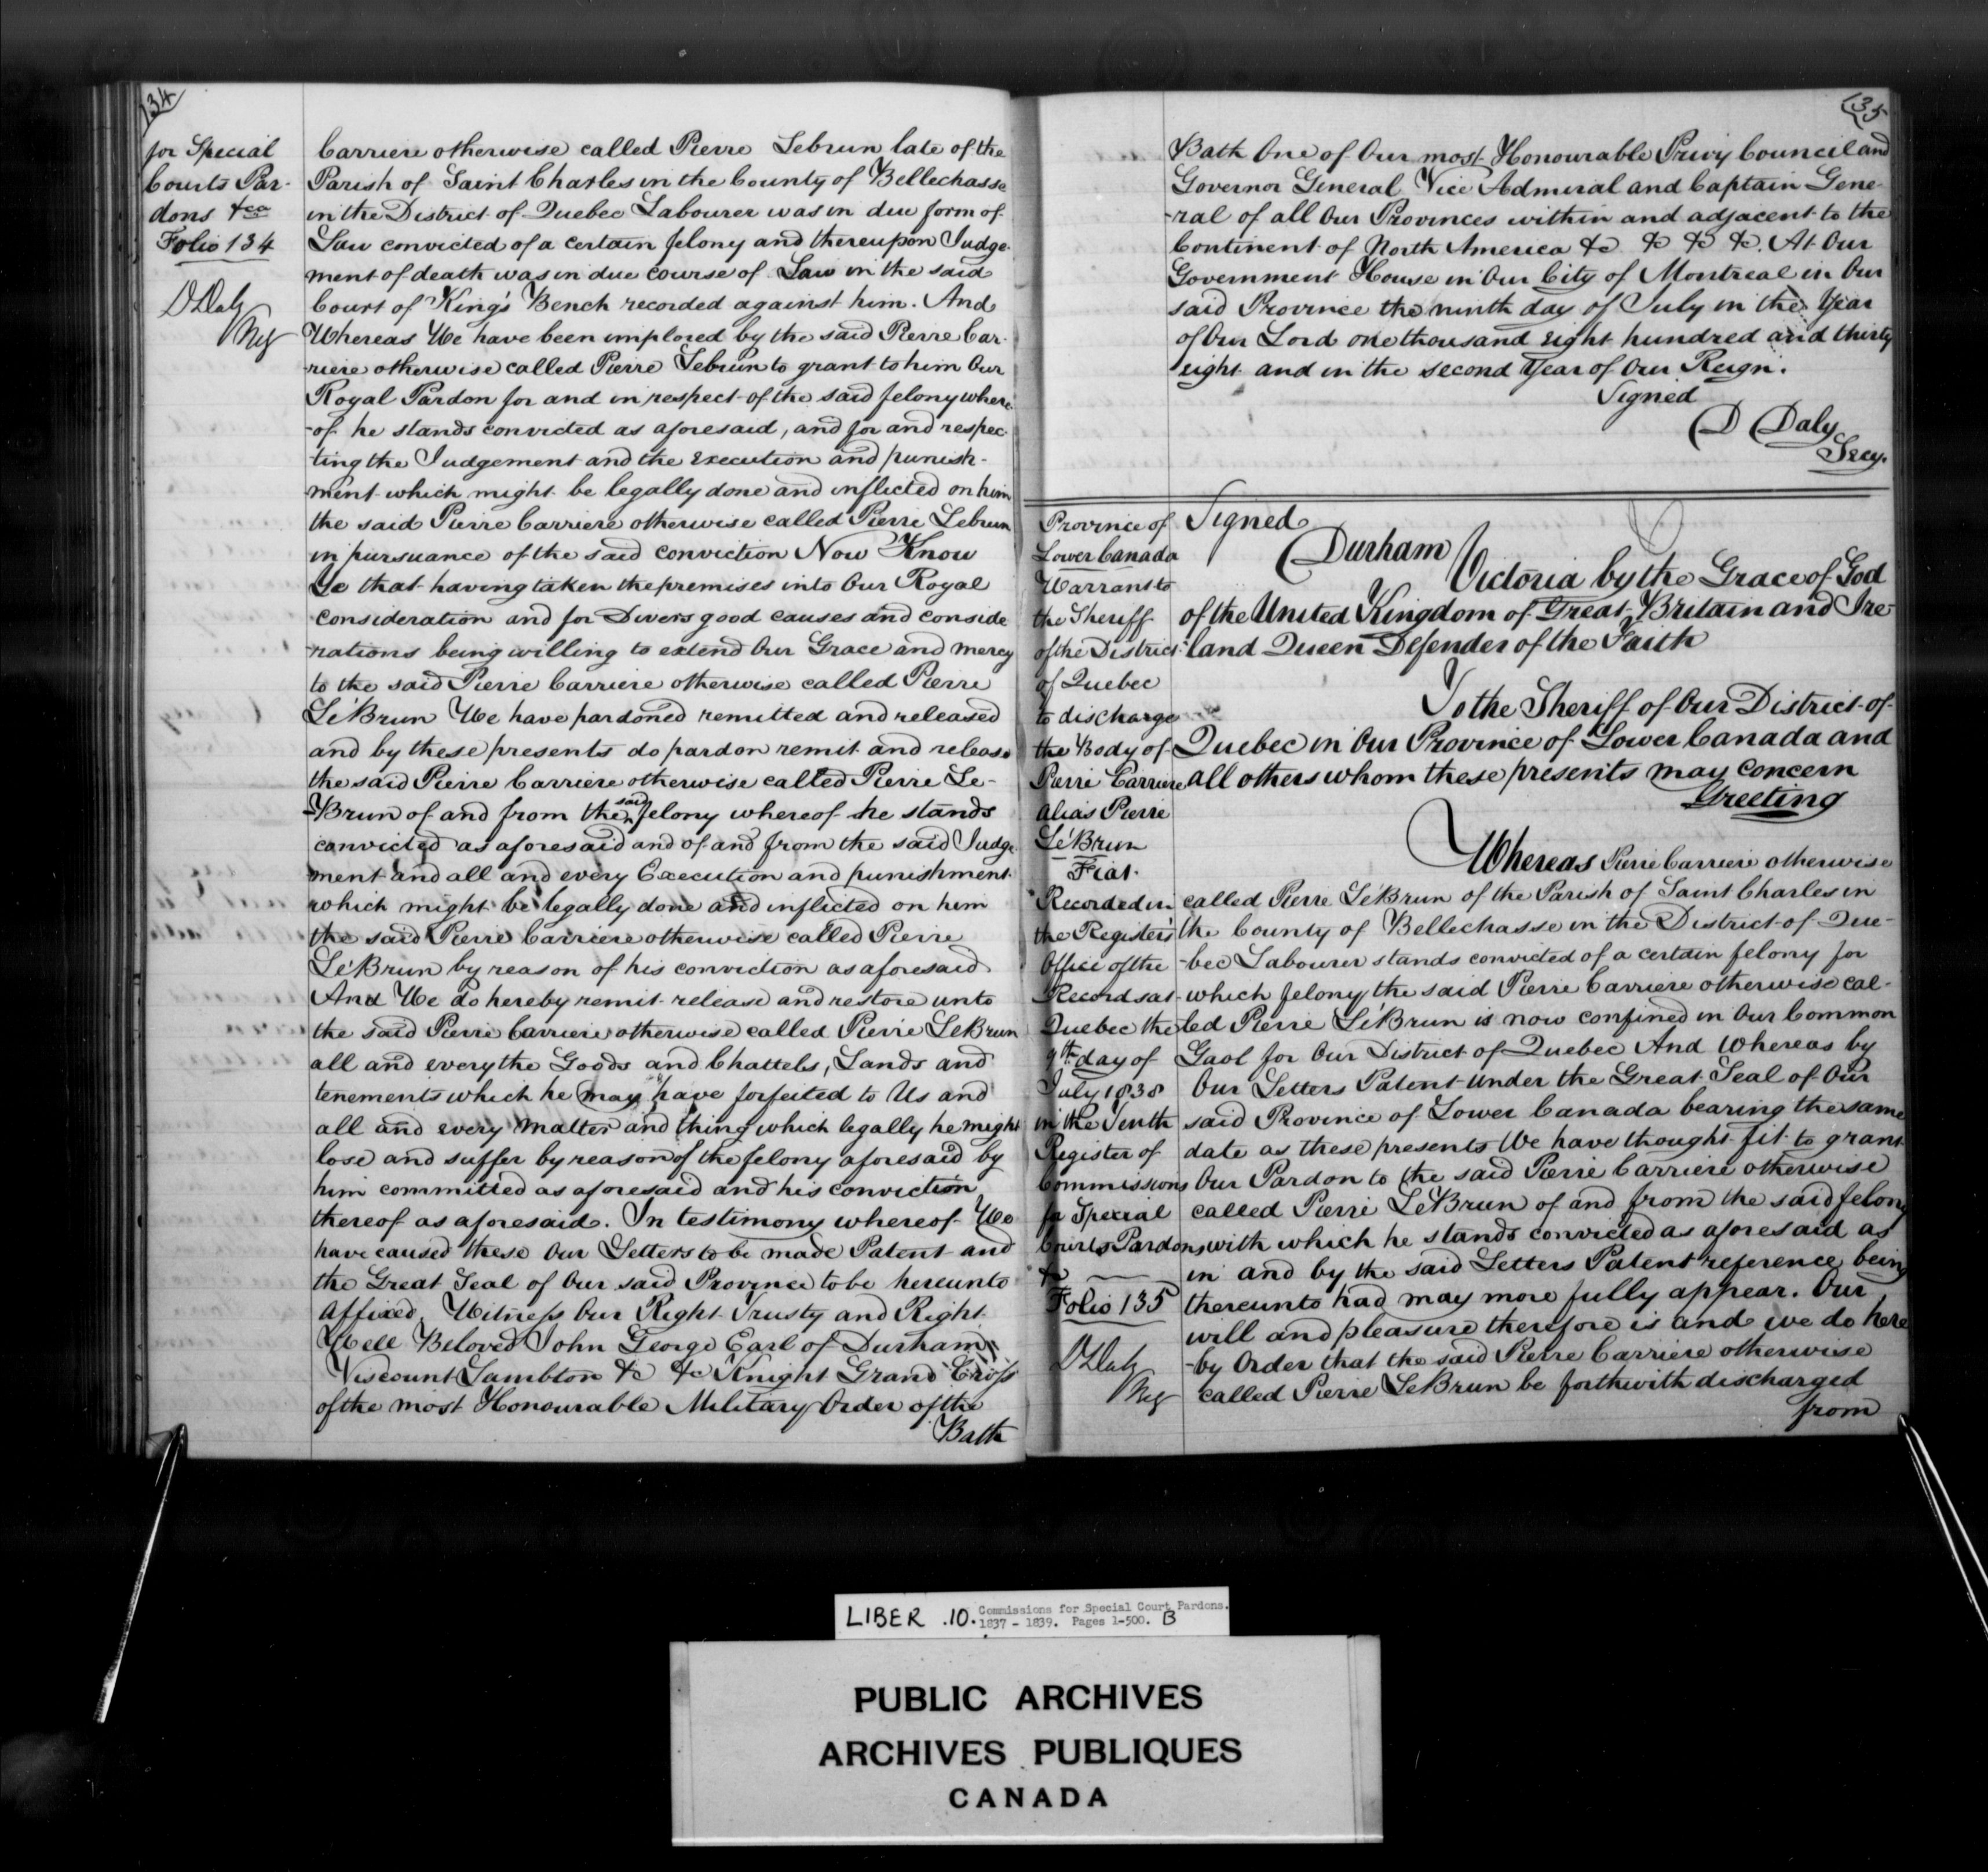 134
for Special
Courts Par-
dons &ca
Folio 134
D Daly
Reg
Carriere otherwise called Pierre Lebrun late of the
Parish of Saint Charles in the County of Bellechasse
in the District of Quebec Labourer was in due form of
Law convicted of a certain felony and thereupon Judge-
ment of death was in due course of Law in the said
Court of King's Bench recorded against him. And
Whereas We have been implored by the said Pierre Car-
riere otherwise called Pierre Lebrun to grant to him Our
Royal Pardon for and in respect of the said felony where-
-of he stands convicted as aforesaid, and for and respec-
ting the Judgement and the execution and punish-
ment which might be legally done and inflicted on him
the said Pierre Carriere otherwise called Pierre Lebrun
in pursuance of the said conviction Now Know
Ye that having taken the premises into Our Royal
consideration and for Divers good causes and conside
-rations being willing to extend Our Grace and mercy
to the said Pierre Carriere otherwise called Pierre
LeBrun We have pardoned remitted and released
and by these presents do pardon remit and release
the said Pierre Carriere otherwise called Pierre Le-
-Brun of and from the said felony whereof he stands
convicted as aforesaid and of and from the said Judge
ment and all and every Execution and punishment
which might be legally done and inflicted on him
the said Pierre Carriere otherwise called Pierre
LeBrun by reason of his conviction as aforesaid
And We do hereby remit release and restore unto
the said Pierre Carriere otherwise called Pierre LeBrun
all and every the Goods and Chattels, Lands and
tenements which he may have forfeited to Us and
all and every matter and thing which legally he might
lose and suffer by reason of the felony aforesaid by
him committed as aforesaid and his conviction
thereof as aforesaid. In testimony whereof We
have caused these Our Letters to be made Patent and
the Great Seal of Our said Province to be hereunto
affixed. Witness Our Right Trusty and Right
Well Beloved John George Earl of Durham
Viscount Lambton &c &c Knight Grand Cross
of the most Honourable Military Order of the
Bath
135
Bath One of Our most Honourable Privy Council and
Governor General Vice Admiral and Captain Gene-
-ral of all Our Provinces within and adjacent to the
Continent of North America &c &c &c &c. At Our
Government House in Our City of Montreal in Our
said Province the ninth day of July in the Year
of Our Lord one thousand eight hundred and thirty
eight and in the second Year of Our Reign.
Signed
D Daly
Secy.
Province of
Lower Canada
Warrant to
the Sheriff
of the District
of Quebec
to discharge
the Body of
Pierre Carriere
alias Pierre
LeBrun
Fiat.
Recorded in
the Register's
Office of the
Records at
Quebec the
9th day of
July 1838
in the Tenth
Register of
Commissions
for Special
Courts Pardons
&c
Folio 135
D Daly
Reg
Signed
Durham
Victoria by the Grace of God
of the United Kingdom of Great Britain and Ire-
land Queen Defender of the Faith
To the Sheriff of Our District of
Quebec in Our Province of Lower Canada and
all others whom these presents may concern
Greeting
Whereas Pierre Carriere otherwise
called Pierre LeBrun of the Parish of Saint Charles in
the County of Bellechasse in the District of Que-
-bec Labourer stands convicted of a certain felony for
which felony the said Pierre Carriere otherwise cal-
led Pierre LeBrun is now confined in Our Common
Gaol for Our District of Quebec And Whereas by
Our Letters Patent under the Great Seal of Our
said Province of Lower Canada bearing the same
date as these presents We have thought fit to grant
Our Pardon to the said Pierre Carriere otherwise
called Pierre LeBrun of and from the said felony
with which he stands convicted as aforesaid as
in and by the said Letters Patent reference being
thereunto had may more fully appear. Our
will and pleasure therefore is and we do here
-by Order that the said Pierre Carriere otherwise
called Pierre LeBrun be forthwith discharged
from
LIBER .10. Commissions for Special Court Pardons.
1837 - 1839. Pages 1-500. B
PUBLIC ARCHIVES
ARCHIVES PUBLIQUES
CANADA